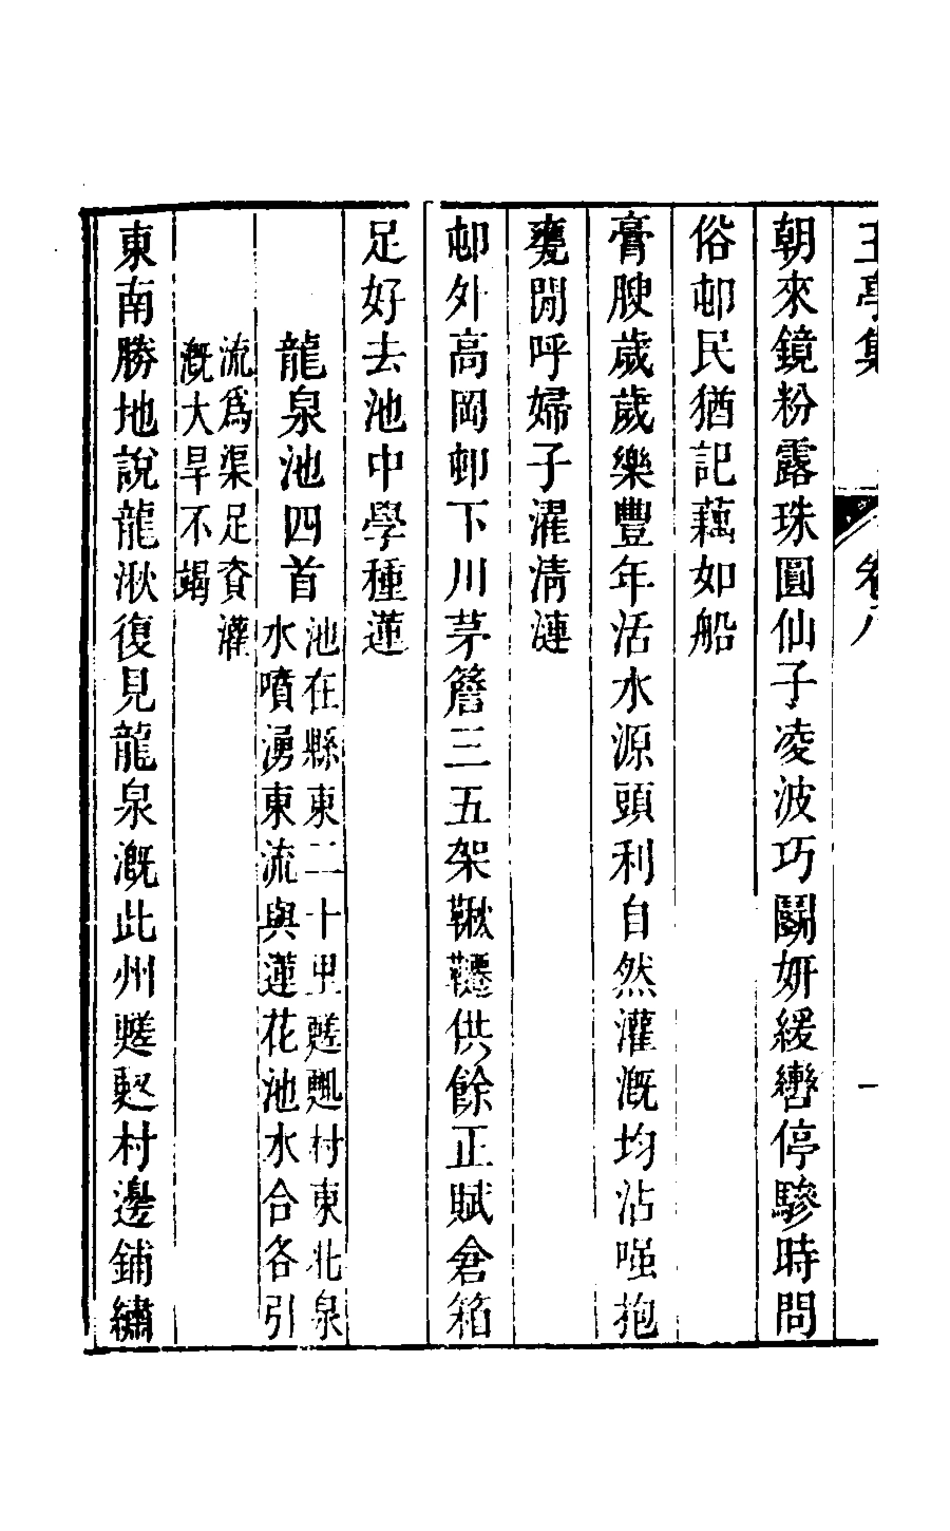 亭集 卷八 一
朝來鏡粉露珠圓仙子凌波巧鬭妍緩轡停驂時問
俗邨民猶記藕如船
膏腴歲歲樂豐年活水源頭利自然灌溉均沾嗤抱
甕閒呼婦子濯清漣
邨外高岡邨下川茅簷三五架鞦韆供餘正賦倉箱
足好去池中學種蓮
龍泉池四首
池在縣東二十里村東北泉
水噴湧東流與蓮花池水合各引
流爲渠足資灌
溉大旱不竭
東南勝地說龍湫復見龍泉溉此州村邊鋪繡